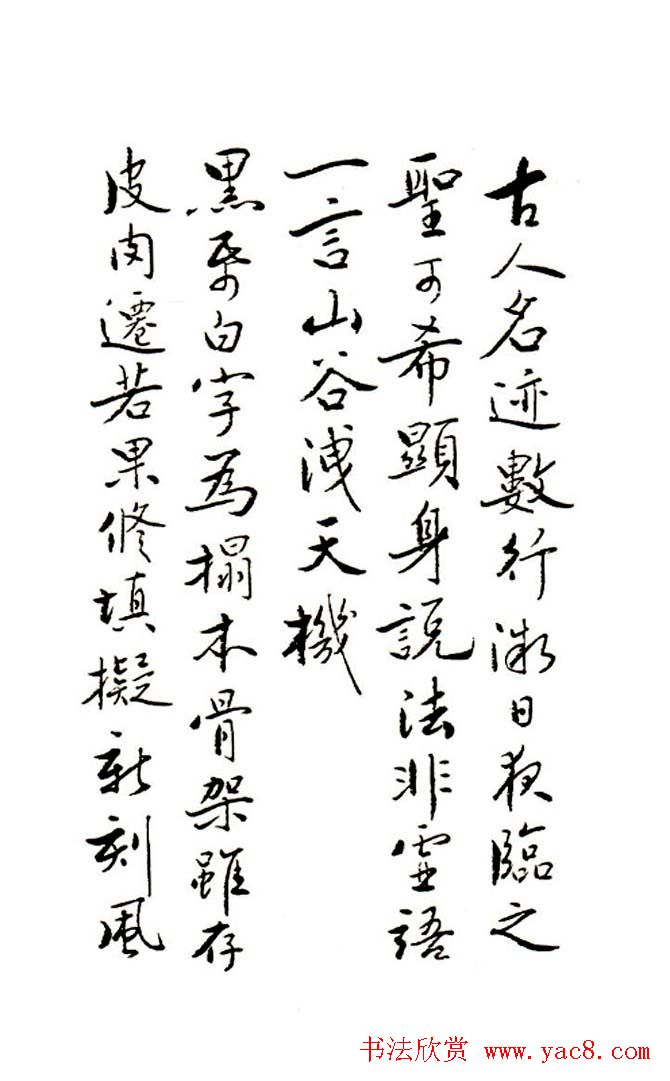 古人名迹數行微日夜臨之
聖可希顯身説法非虛語
一言山谷洩天機
黑帋白字為搨本骨架雖存
皮肉遷若果修填擬新刻風
书法欣赏 www.yac8.com